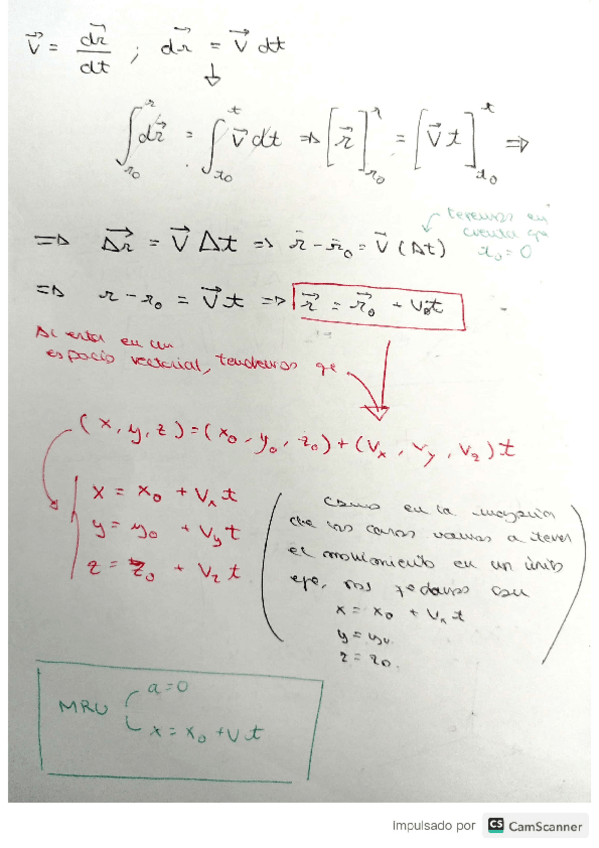 V⃗ = dr⃗/dt ; dr⃗ = V⃗ dt
↓
∫_{r₀}^{r} dr⃗ = ∫_{t₀}^{t} V⃗ dt ⇒ [r⃗]_{r₀}^{r} = [V⃗ t]_{t₀}^{t} ⇒
tenemos en
cuenta que
t₀ = 0
⇒ Δr⃗ = V⃗ Δt ⇒ r⃗ - r⃗₀ = V⃗ (Δt)
⇒ r - r₀ = V⃗ t ⇒ r⃗ = r⃗₀ + V₀t
Si esta en un
espacio vectorial, tendremos que
(x, y, z) = (x₀, y₀, z₀) + (Vx, Vy, Vz) t
x = x₀ + Vx t
y = y₀ + Vy t
z = z₀ + Vz t
Como en la mayoria
de los casos vamos a tener
el movimiento en un único
eje, nos quedamos con
x = x₀ + Vx t
y = y₀
z = z₀.
MRU
a = 0
x = x₀ + V t
Impulsado por CS CamScanner